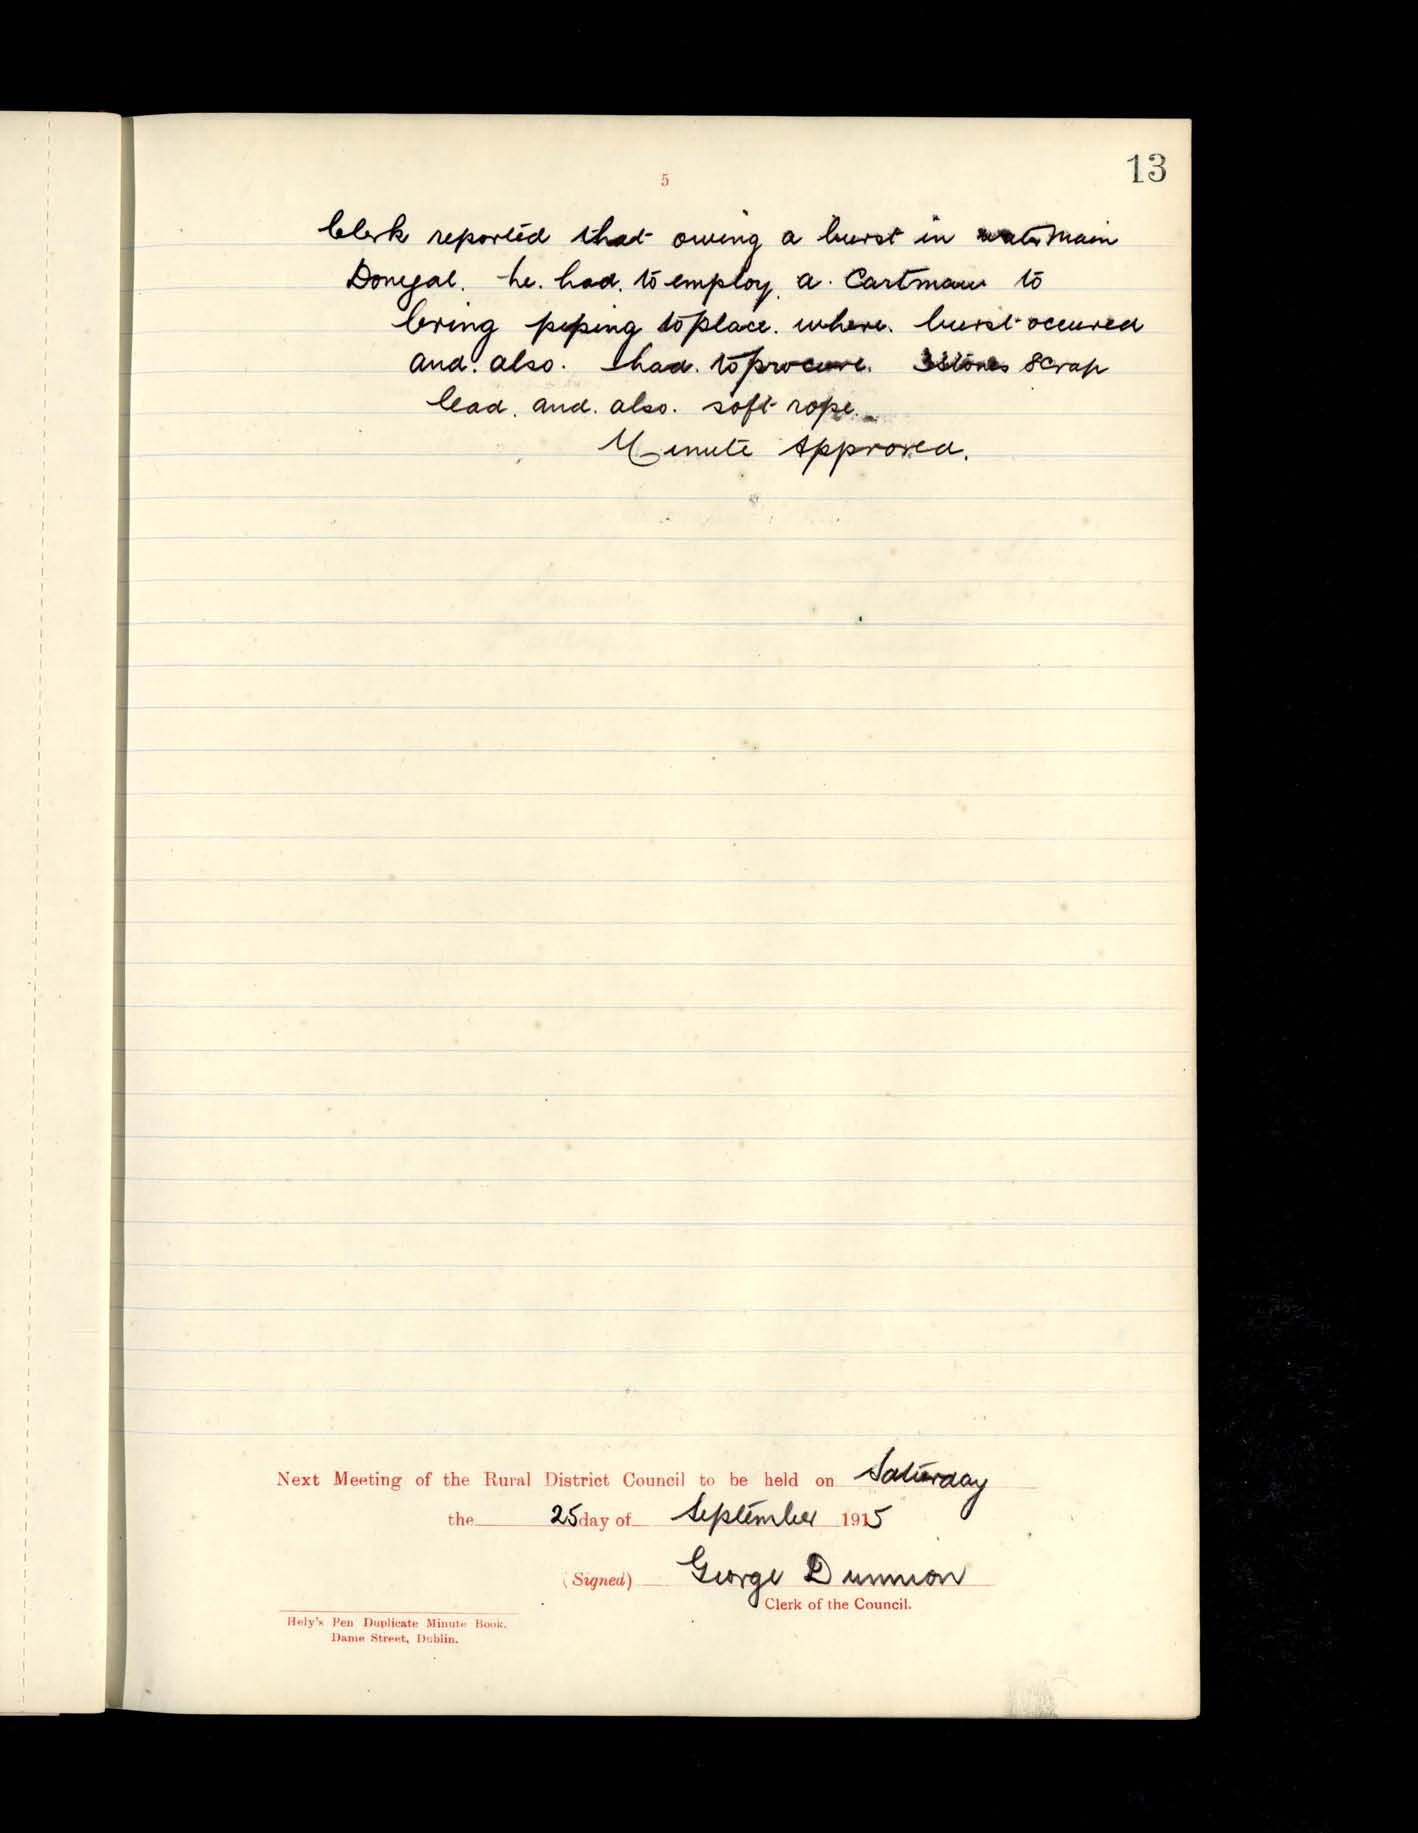 13
5
Clerk reported that owing a burst in water main
Donegal. he. had. to employ. a. Cartman to
bring piping to place. where. burst occured
and. also. had. to procure. 3 stones Scrap
lead. and. also. soft rope.
Minute Approved.
Next Meeting of the Rural District Council to be held on Saturday
the 25 day of September 1915
(Signed) George Dunnion
Clerk of the Council.
Hely's Pen Duplicate Minute Book.
Dame Street, Dublin.